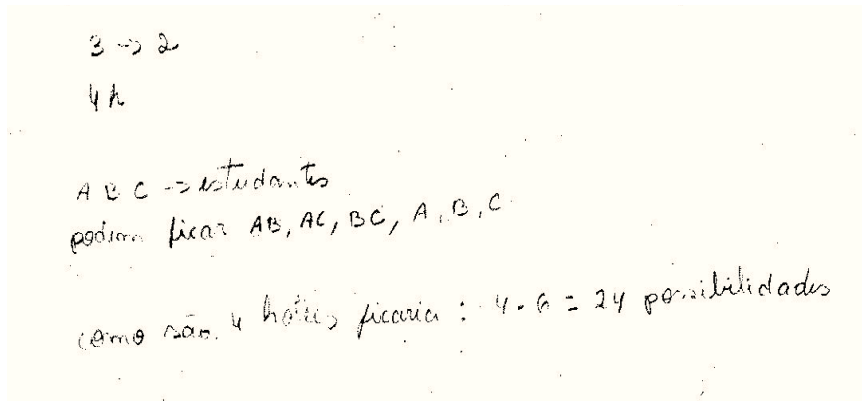 3 -> 2
4h
A B C -> estudantes
podem ficar AB, AC, BC, A, B, C
como são 4 hotéis ficaria : 4 . 6 = 24 possibilidades